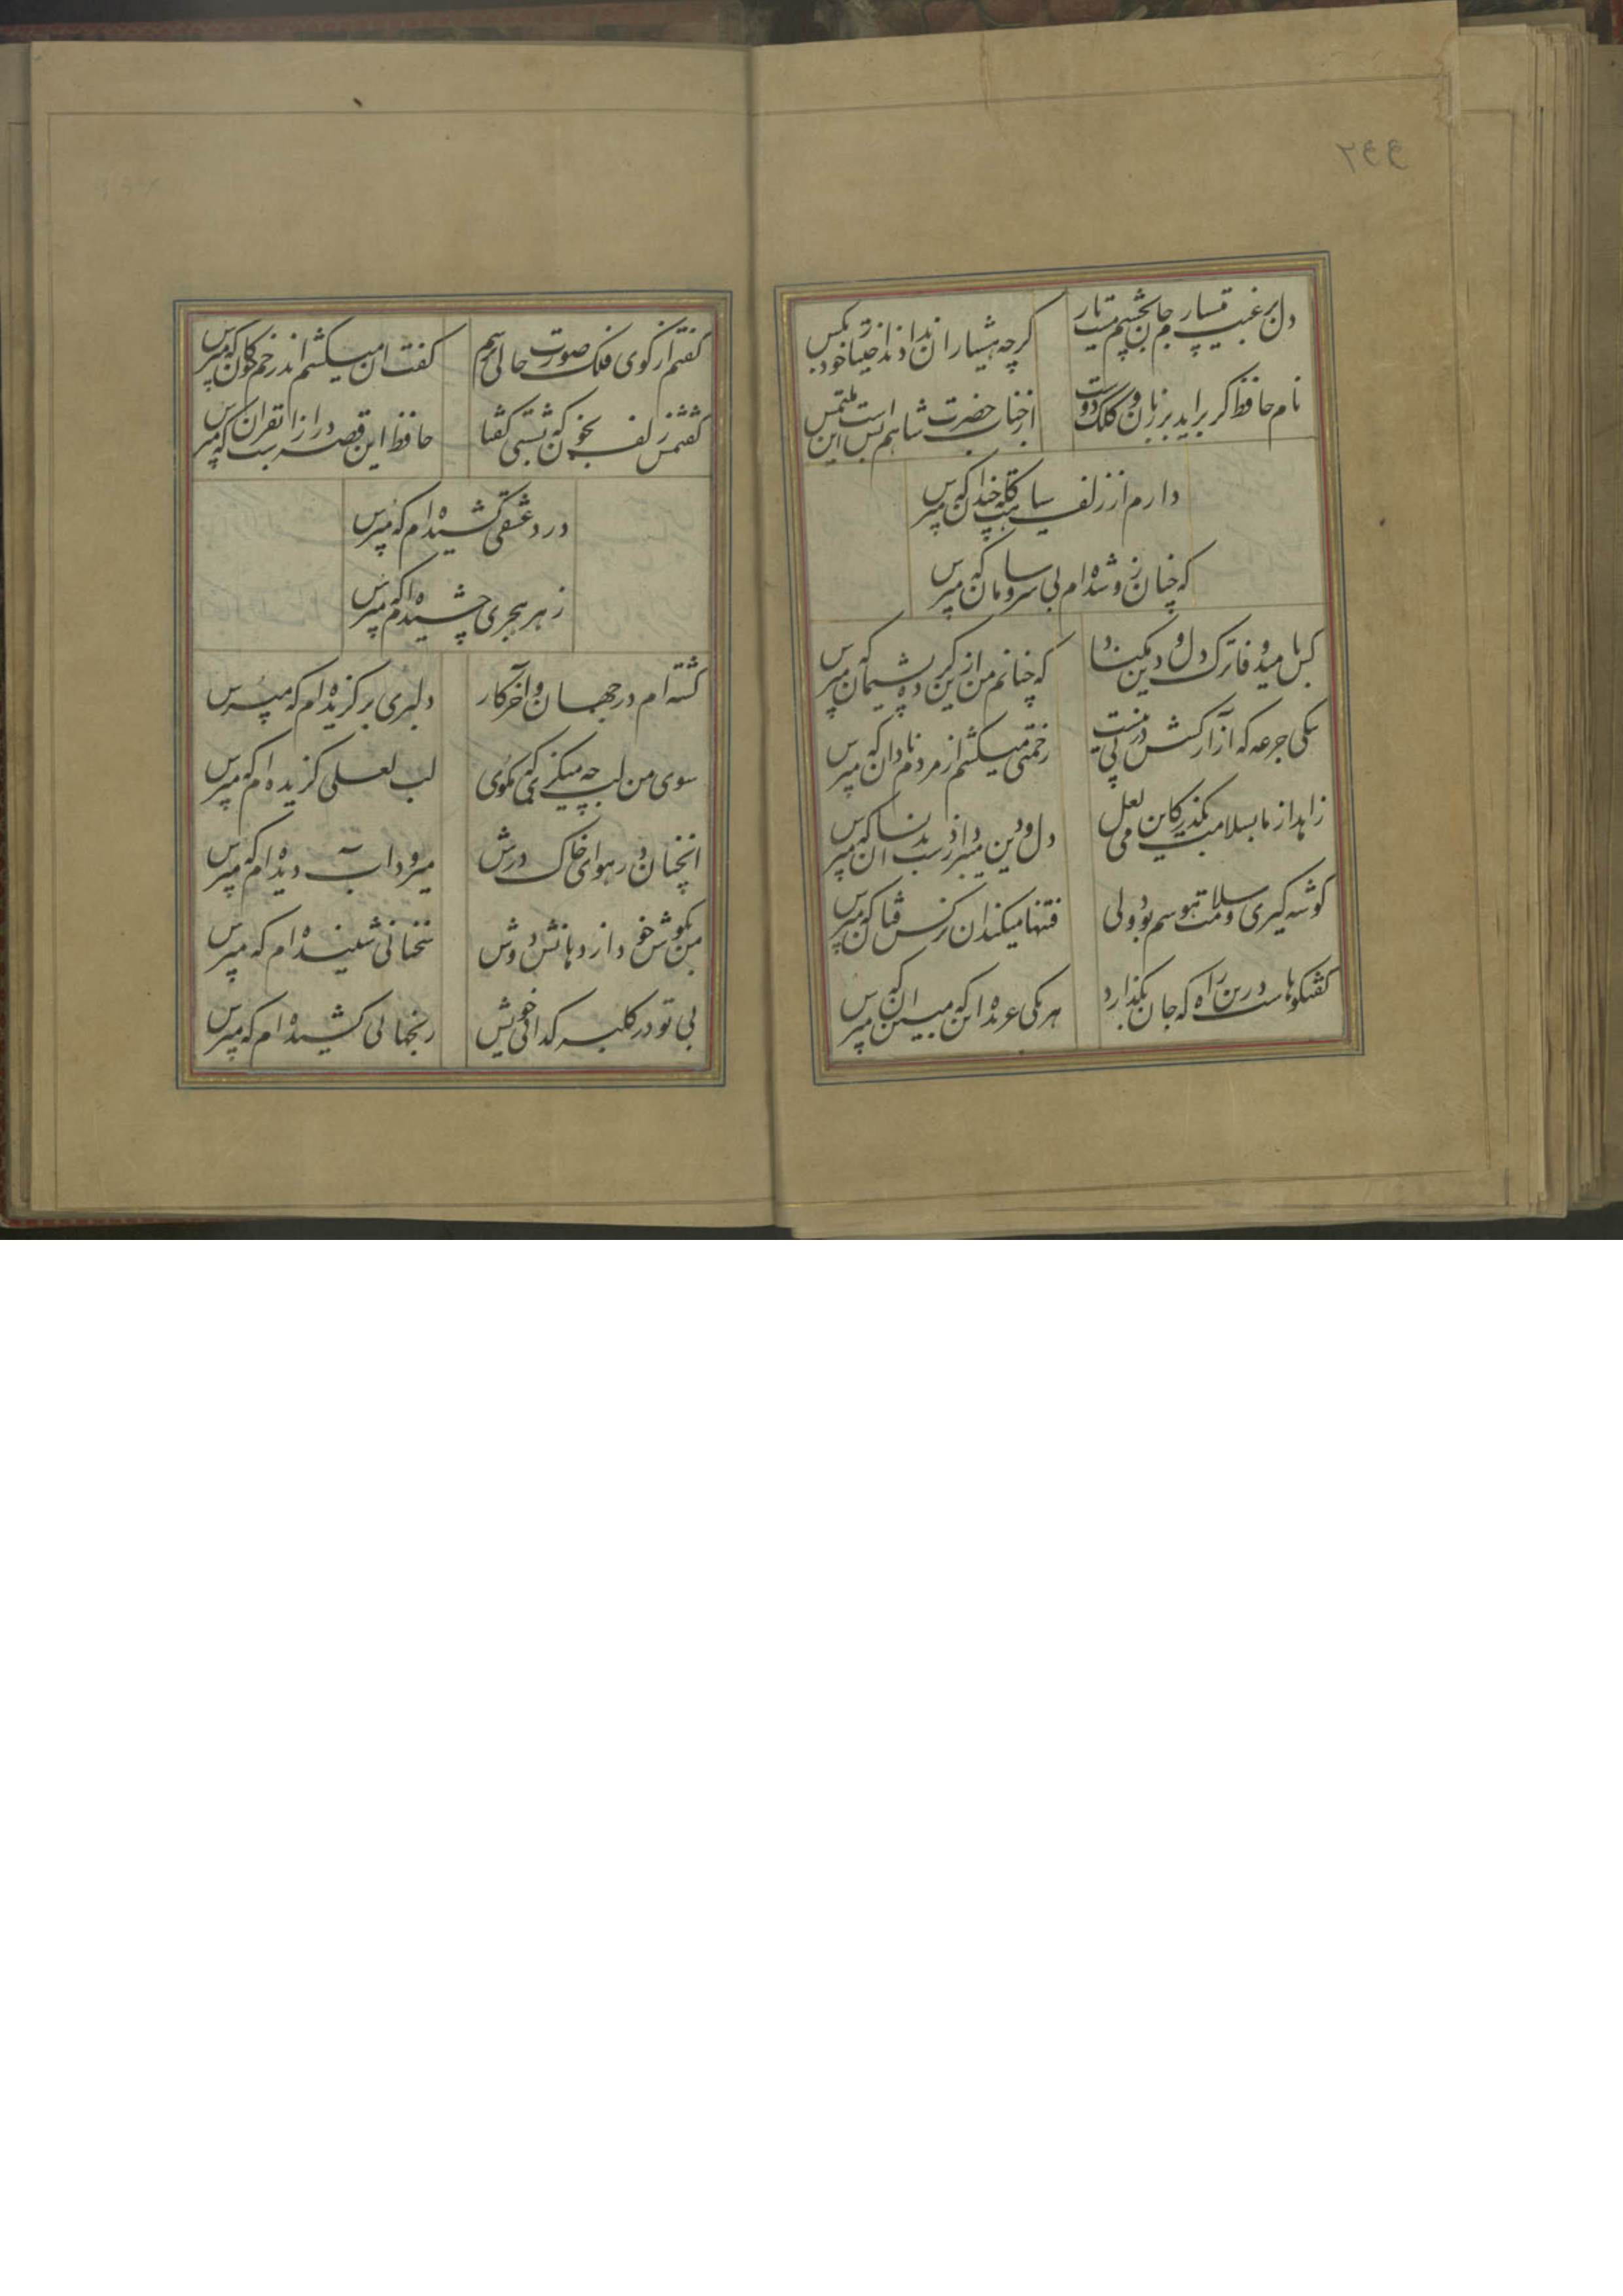 ۲۶۶
دل برغبت میسپارم جان بچشم مست یار
گرچه هشیاران ندادند اختیار خود بکس
نام حافظ گر براید بر زبان کلک دوست
از جناب حضرت شاهم بس است این ملتمس
دارم از زلف سیاهت گله چندان که مپرس
که چنان زو شده ام بی سر و سامان که مپرس
کس بامید وفا ترک دل و دین مکناد
که چنانم من ازین کرده پشیمان که مپرس
بیکی جرعه که آزار کسش در پی نیست
زحمتی میکشم از مردم نادان که مپرس
زاهد از ما بسلامت بگذر کاین می لعل
دل و دین میبرد از دست بدانسان که مپرس
گوشه گیری و سلامت هوسم بود ولی
فتنها میکند ان نرگس فتان که مپرس
گفتگوهاست درین راه که جان بگذارد
هر یکی عربده این که مبین ان که مپرس
گفتم از گوی فلک صورت حالی پرسم
گفت ان میکشم اندر خم چوگان که مپرس
گفتمش زلف بخون که شکستی گفتا
حافظ این قصه درازست بقران که مپرس
درد عشقی کشیده ام که مپرس
زهر هجری چشیده ام که مپرس
گشته ام در جهان و آخر کار
دلبری برگزیده ام که مپرس
سوی من لب چه میگزی که مگوی
لب لعلی گزیده ام که مپرس
انچنان در هوای خاک درش
میرود اب دیده ام که مپرس
من بگوش خود از دهانش دوش
سخنانی شنیده ام که مپرس
بی تو در کلبه گدائی خویش
رنجهائی کشیده ام که مپرس